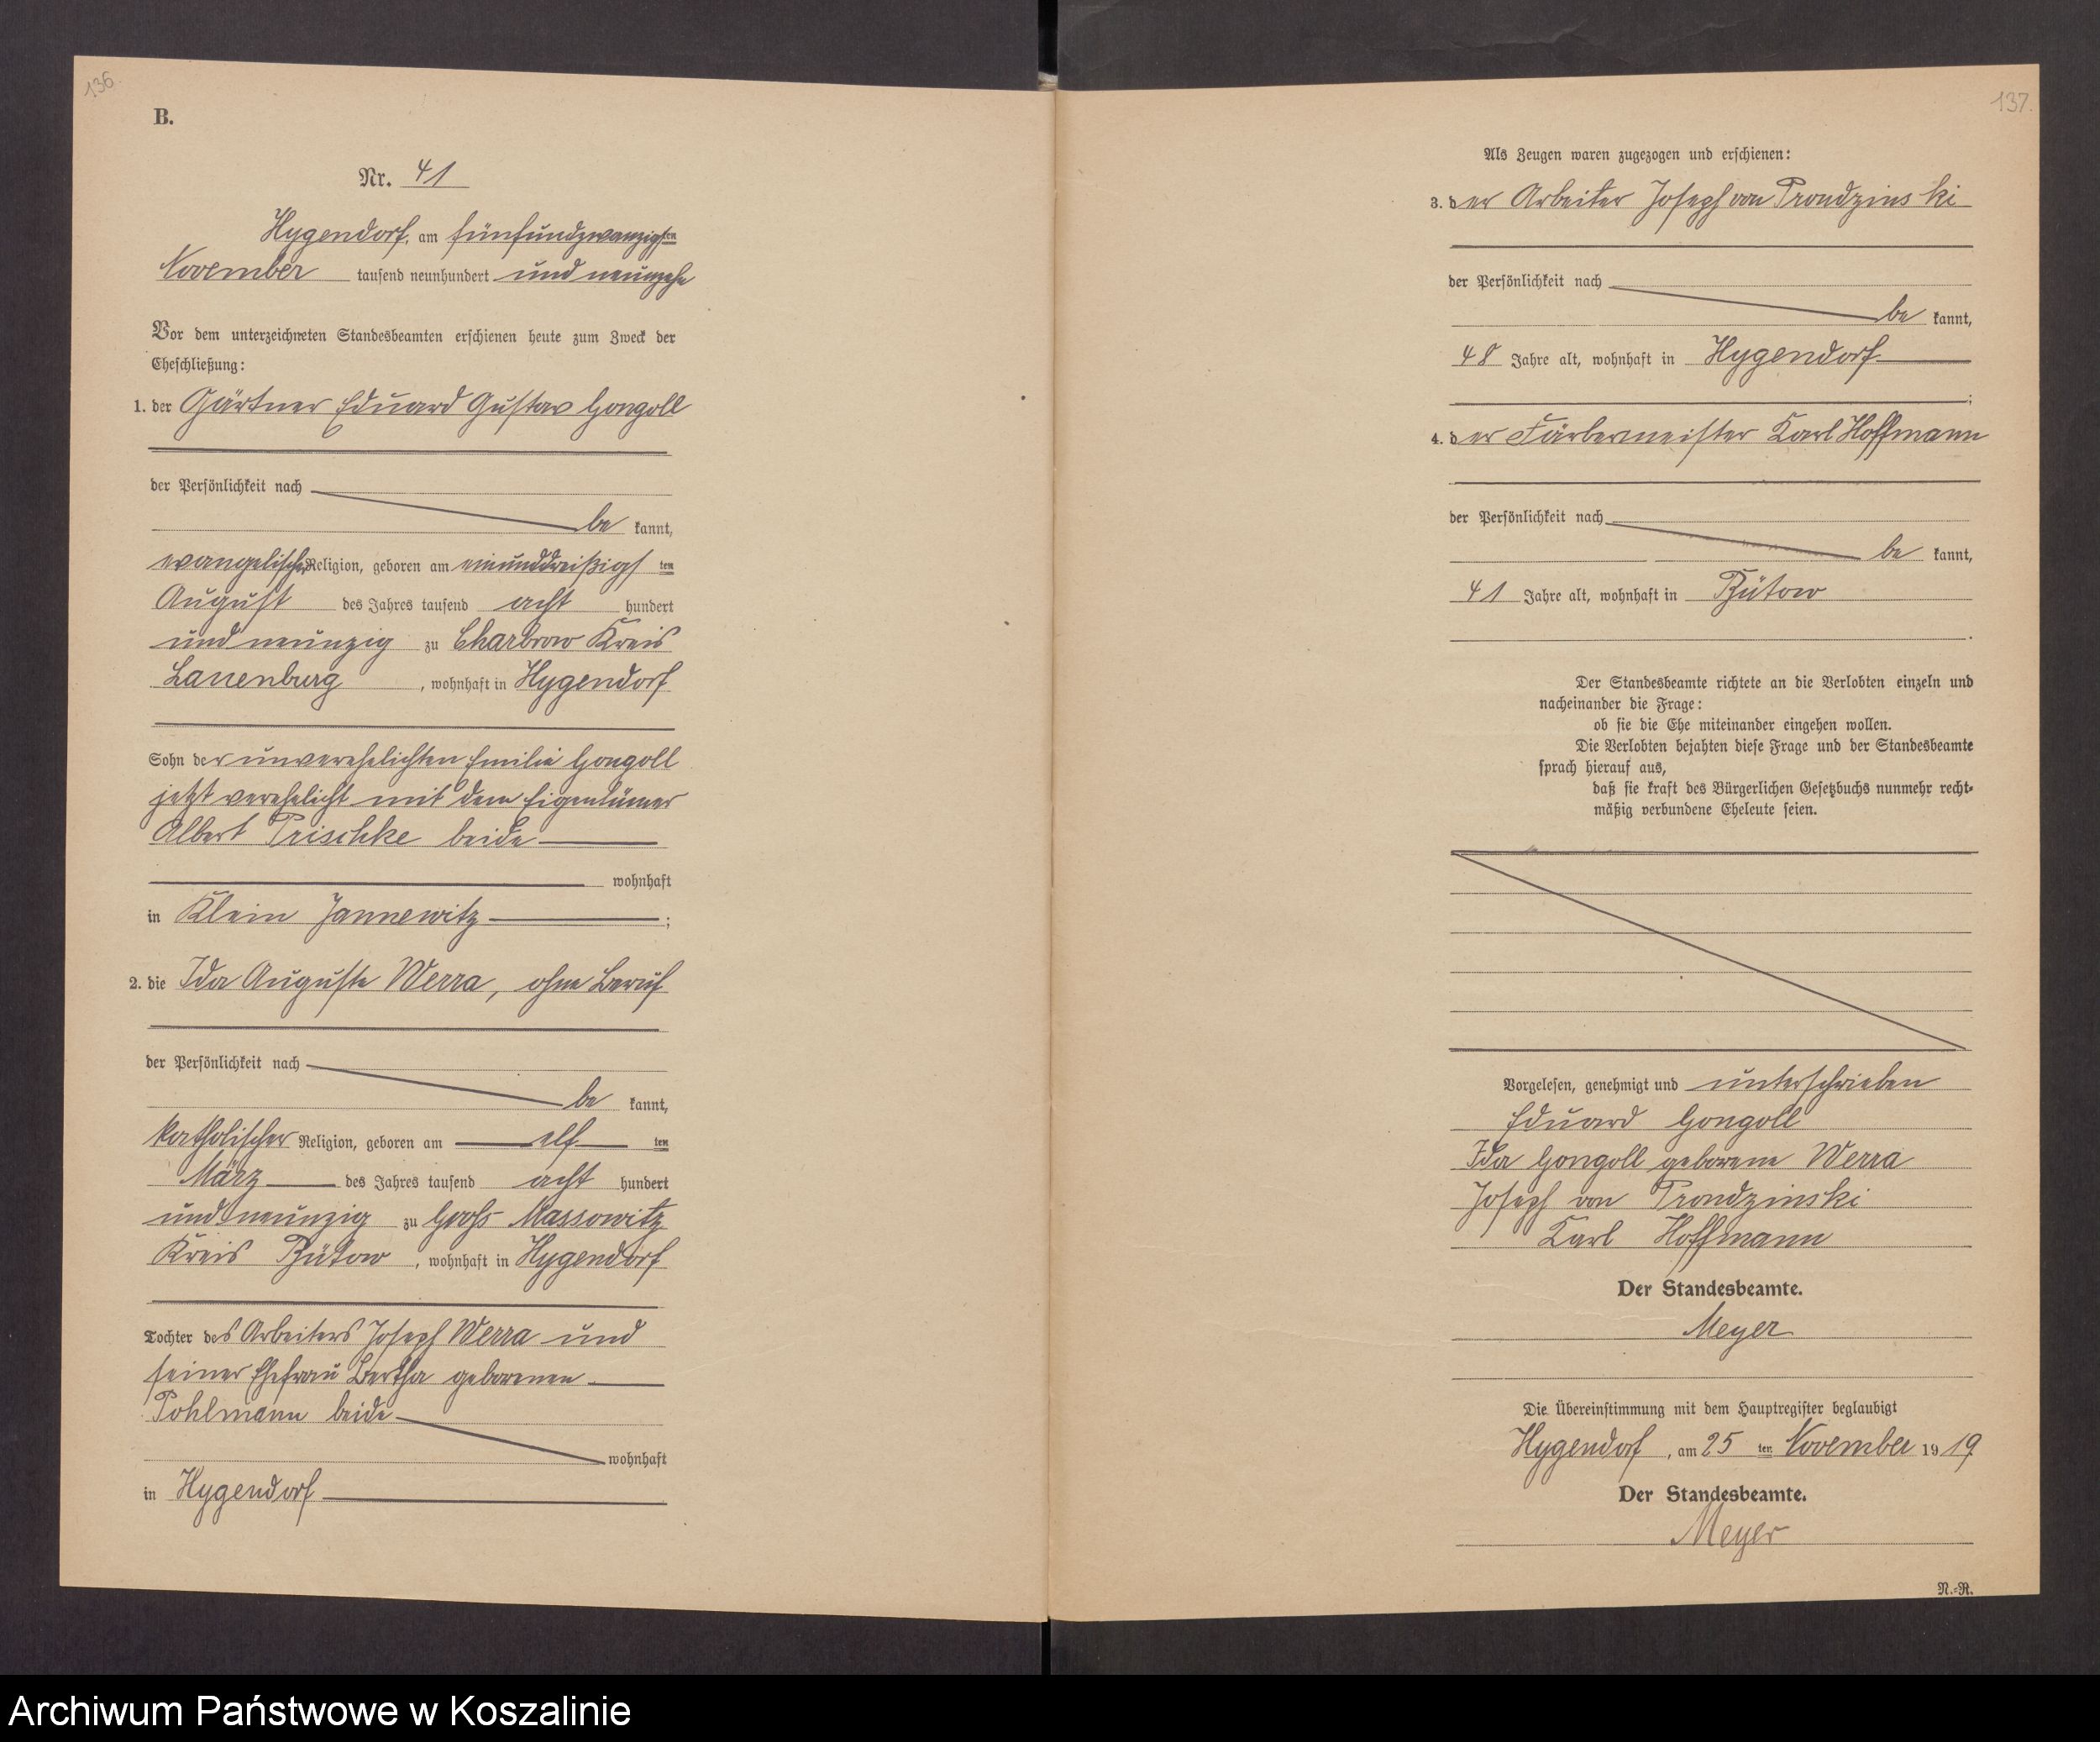 136.
B.
Nr. 41
Hygendorf, am fünfundzwanzigsten
November tausend neunhundert und neunzehn
Vor dem unterzeichneten Standesbeamten erschienen heute zum Zweck der
Eheschließung:
1. der Gärtner Eduard Gustav Gongoll
der Persönlichkeit nach
be kannt,
evangelischer Religion, geboren am einunddreißigsten
August des Jahres tausend acht hundert
und neunzig zu Charbrow Kreis
Lauenburg, wohnhaft in Hygendorf
Sohn der unverehelichten Emilie Gongoll
jetzt verehelicht mit dem Eigentümer
Albert Prischke beide
wohnhaft
in Klein Jannewitz ;
2. die Ida Auguste Werra, ohne Beruf
der Persönlichkeit nach
be kannt,
katholischer Religion, geboren am elf ten
März des Jahres tausend acht hundert
und neunzig zu Groß Massowitz
Kreis Bütow, wohnhaft in Hygendorf
Tochter des Arbeiters Joseph Werra und
seiner Ehefrau Bertha geborenen
Pohlmann beide
wohnhaft
in Hygendorf
137.
Als Zeugen waren zugezogen und erschienen:
3. der Arbeiter Joseph von Prondzinski
der Persönlichkeit nach
be kannt,
48 Jahre alt, wohnhaft in Hygendorf
;
4. der Färbermeister Karl Hoffmann
der Persönlichkeit nach
be kannt,
41 Jahre alt, wohnhaft in Bütow
.
Der Standesbeamte richtete an die Verlobten einzeln und
nacheinander die Frage:
ob sie die Ehe miteinander eingehen wollen.
Die Verlobten bejahten diese Frage und der Standesbeamte
sprach hierauf aus,
daß sie kraft des Bürgerlichen Gesetzbuchs nunmehr recht-
mäßig verbundene Eheleute seien.
Vorgelesen, genehmigt und unterschrieben
Eduard Gongoll
Ida Gongoll geborene Werra
Joseph von Prondzinski
Karl Hoffmann
Der Standesbeamte.
Meyer
Die Übereinstimmung mit dem Hauptregister beglaubigt
Hygendorf, am 25 ten November 1919
Der Standesbeamte.
Meyer
N.-R.
Archiwum Państwowe w Koszalinie